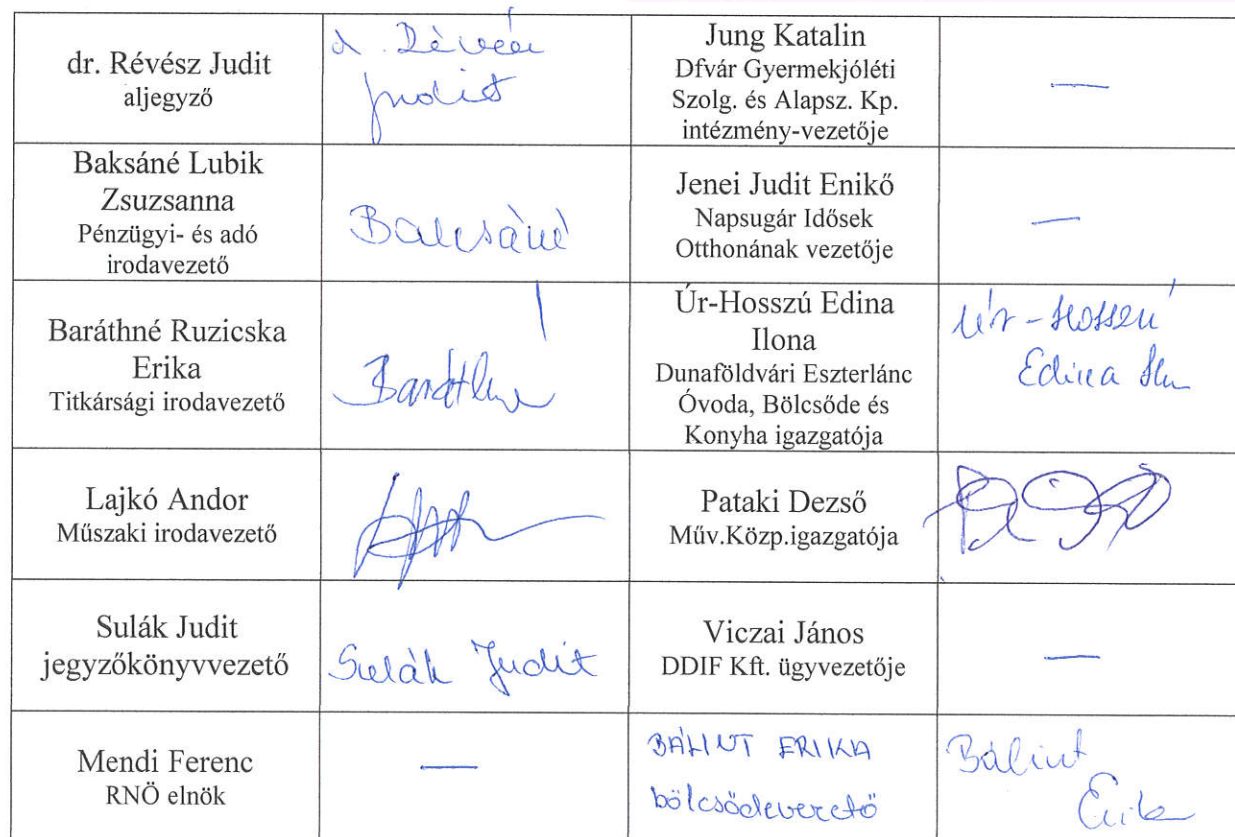 dr. Révész Judit
aljegyző
d. Révész
Judit
Jung Katalin
Dfvár Gyermekjóléti
Szolg. és Alapsz. Kp.
intézmény-vezetője
—
Baksáné Lubik
Zsuzsanna
Pénzügyi- és adó
irodavezető
Baksáné
Jenei Judit Enikő
Napsugár Idősek
Otthonának vezetője
—
Baráthné Ruzicska
Erika
Titkársági irodavezető
Baráthné
Úr-Hosszú Edina
Ilona
Dunaföldvári Eszterlánc
Óvoda, Bölcsőde és
Konyha igazgatója
Úr-Hosszú
Edina
Lajkó Andor
Műszaki irodavezető
Pataki Dezső
Műv.Közp.igazgatója
Sulák Judit
jegyzőkönyvvezető
Sulák Judit
Viczai János
DDIF Kft. ügyvezetője
—
Mendi Ferenc
RNÖ elnök
—
BÁLINT ERIKA
bölcsődevezető
Bálint
Erika